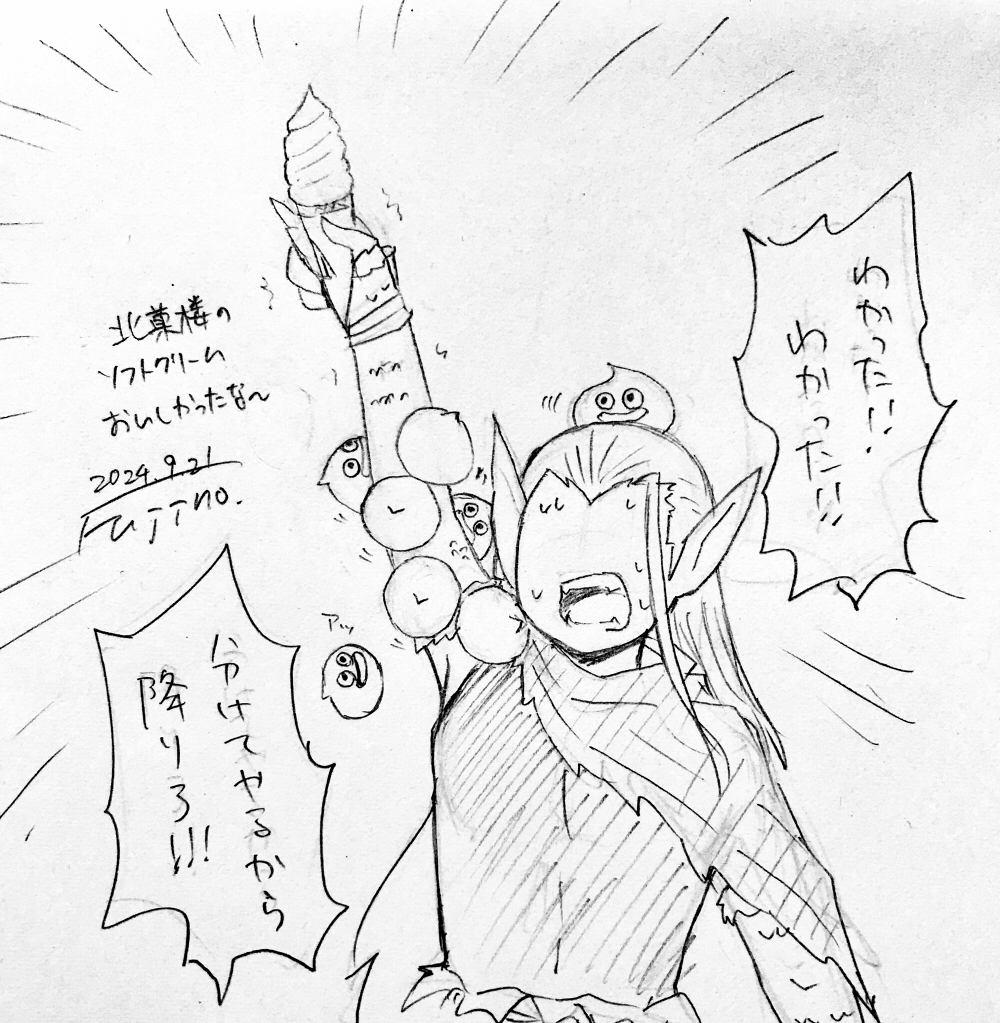 わかった!!
わかった!!
北菓楼の
ソフトクリーム
おいしかったな〜
2024.9.21
FUJINO.
アッ
分けてやるから
降りろ!!!